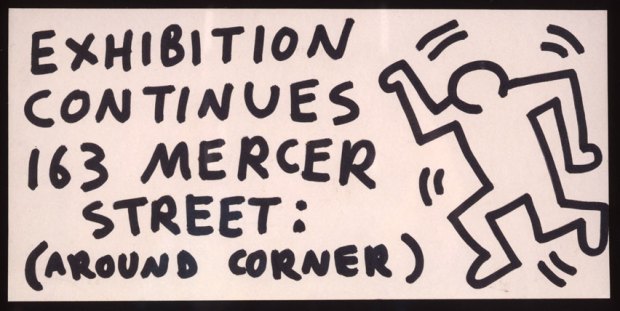 EXHIBITION
CONTINUES
163 MERCER
STREET:
(AROUND CORNER)